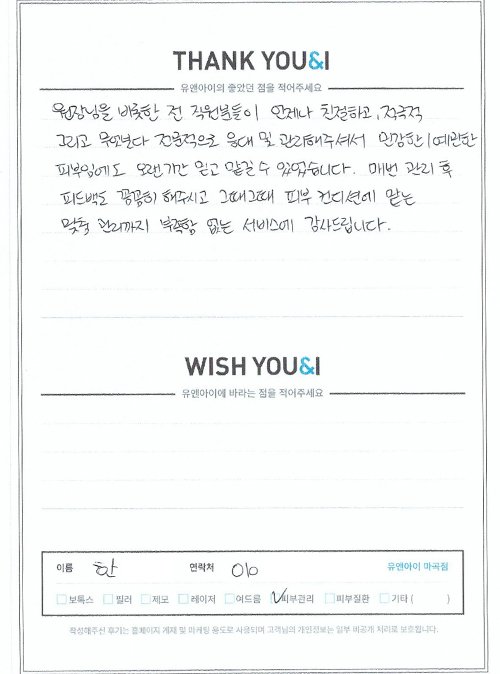 THANK YOU&I
유앤아이의 좋았던 점을 적어주세요
원장님을 비롯한 전 직원분들이 언제나 친절하고, 적극적
그리고 무엇보다 전문적으로 응대 및 관리해주셔서 민감한/예민한
피부임에도 오랜기간 믿고 맡길 수 있었습니다. 매번 관리 후
피드백도 꼼꼼히 해주시고 그때그때 피부 컨디션에 맞는
맞춤 관리까지 부족함 없는 서비스에 감사드립니다.
WISH YOU&I
유앤아이에 바라는 점을 적어주세요
이름 한 연락처 010 유앤아이 마곡점
보톡스 필러 제모 레이저 여드름 피부관리 피부질환 기타 ( )
작성해주신 후기는 홈페이지 게재 및 마케팅 용도로 사용되며 고객님의 개인정보는 일부 비공개 처리로 보호됩니다.